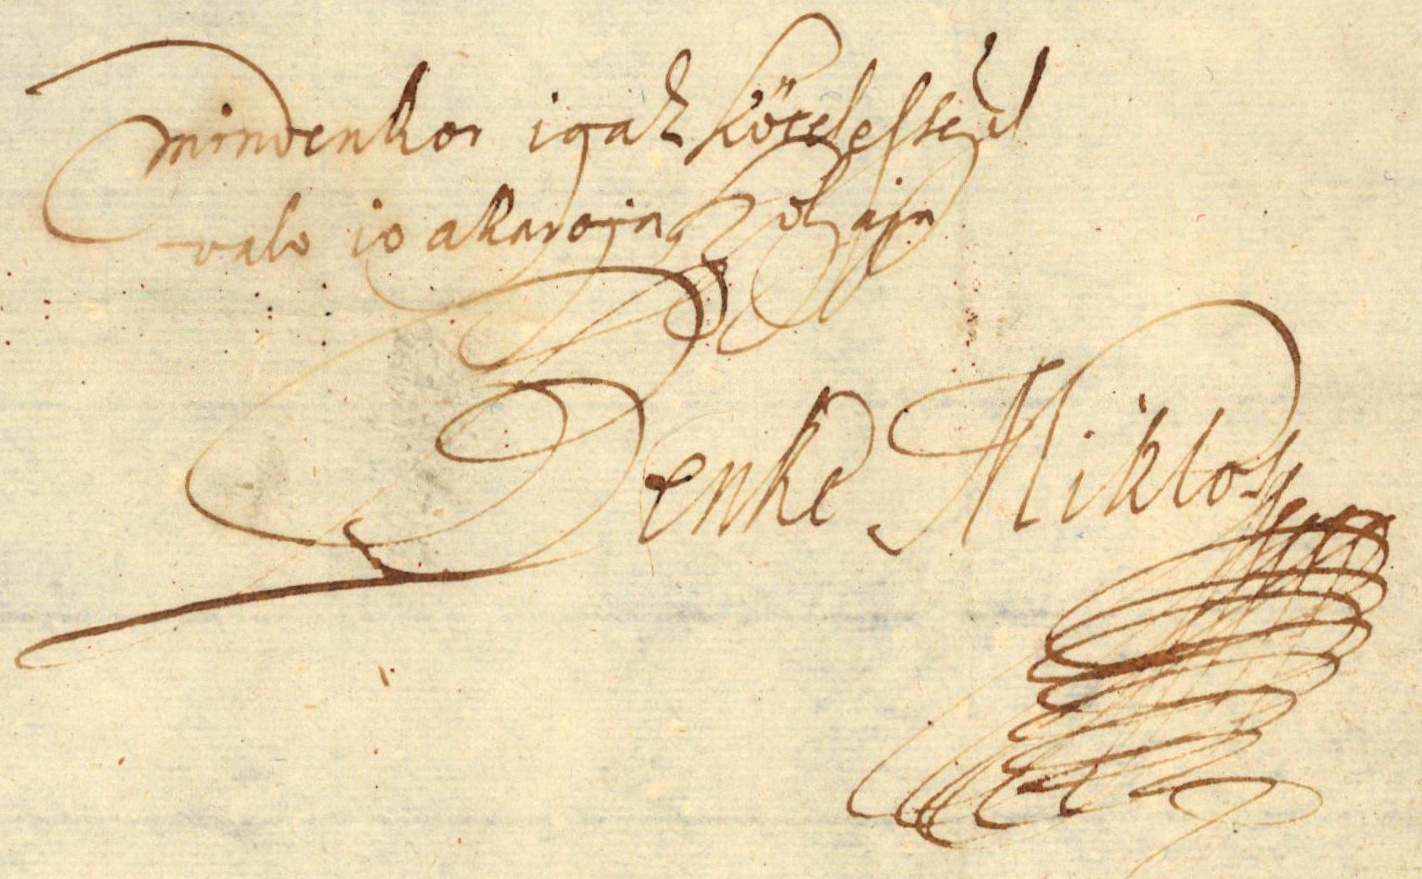 mindenkor igaz kötelessegel
valo io akaroja, szolgaja
Benke Miklos